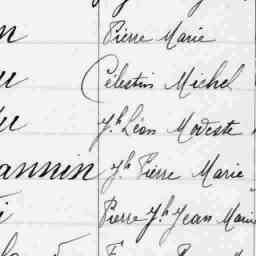 n Pierre Marie
u Célestin Michel
u Jh Léon Modeste
annin Jh Pierre Marie
i Pierre Jh Jean Marie